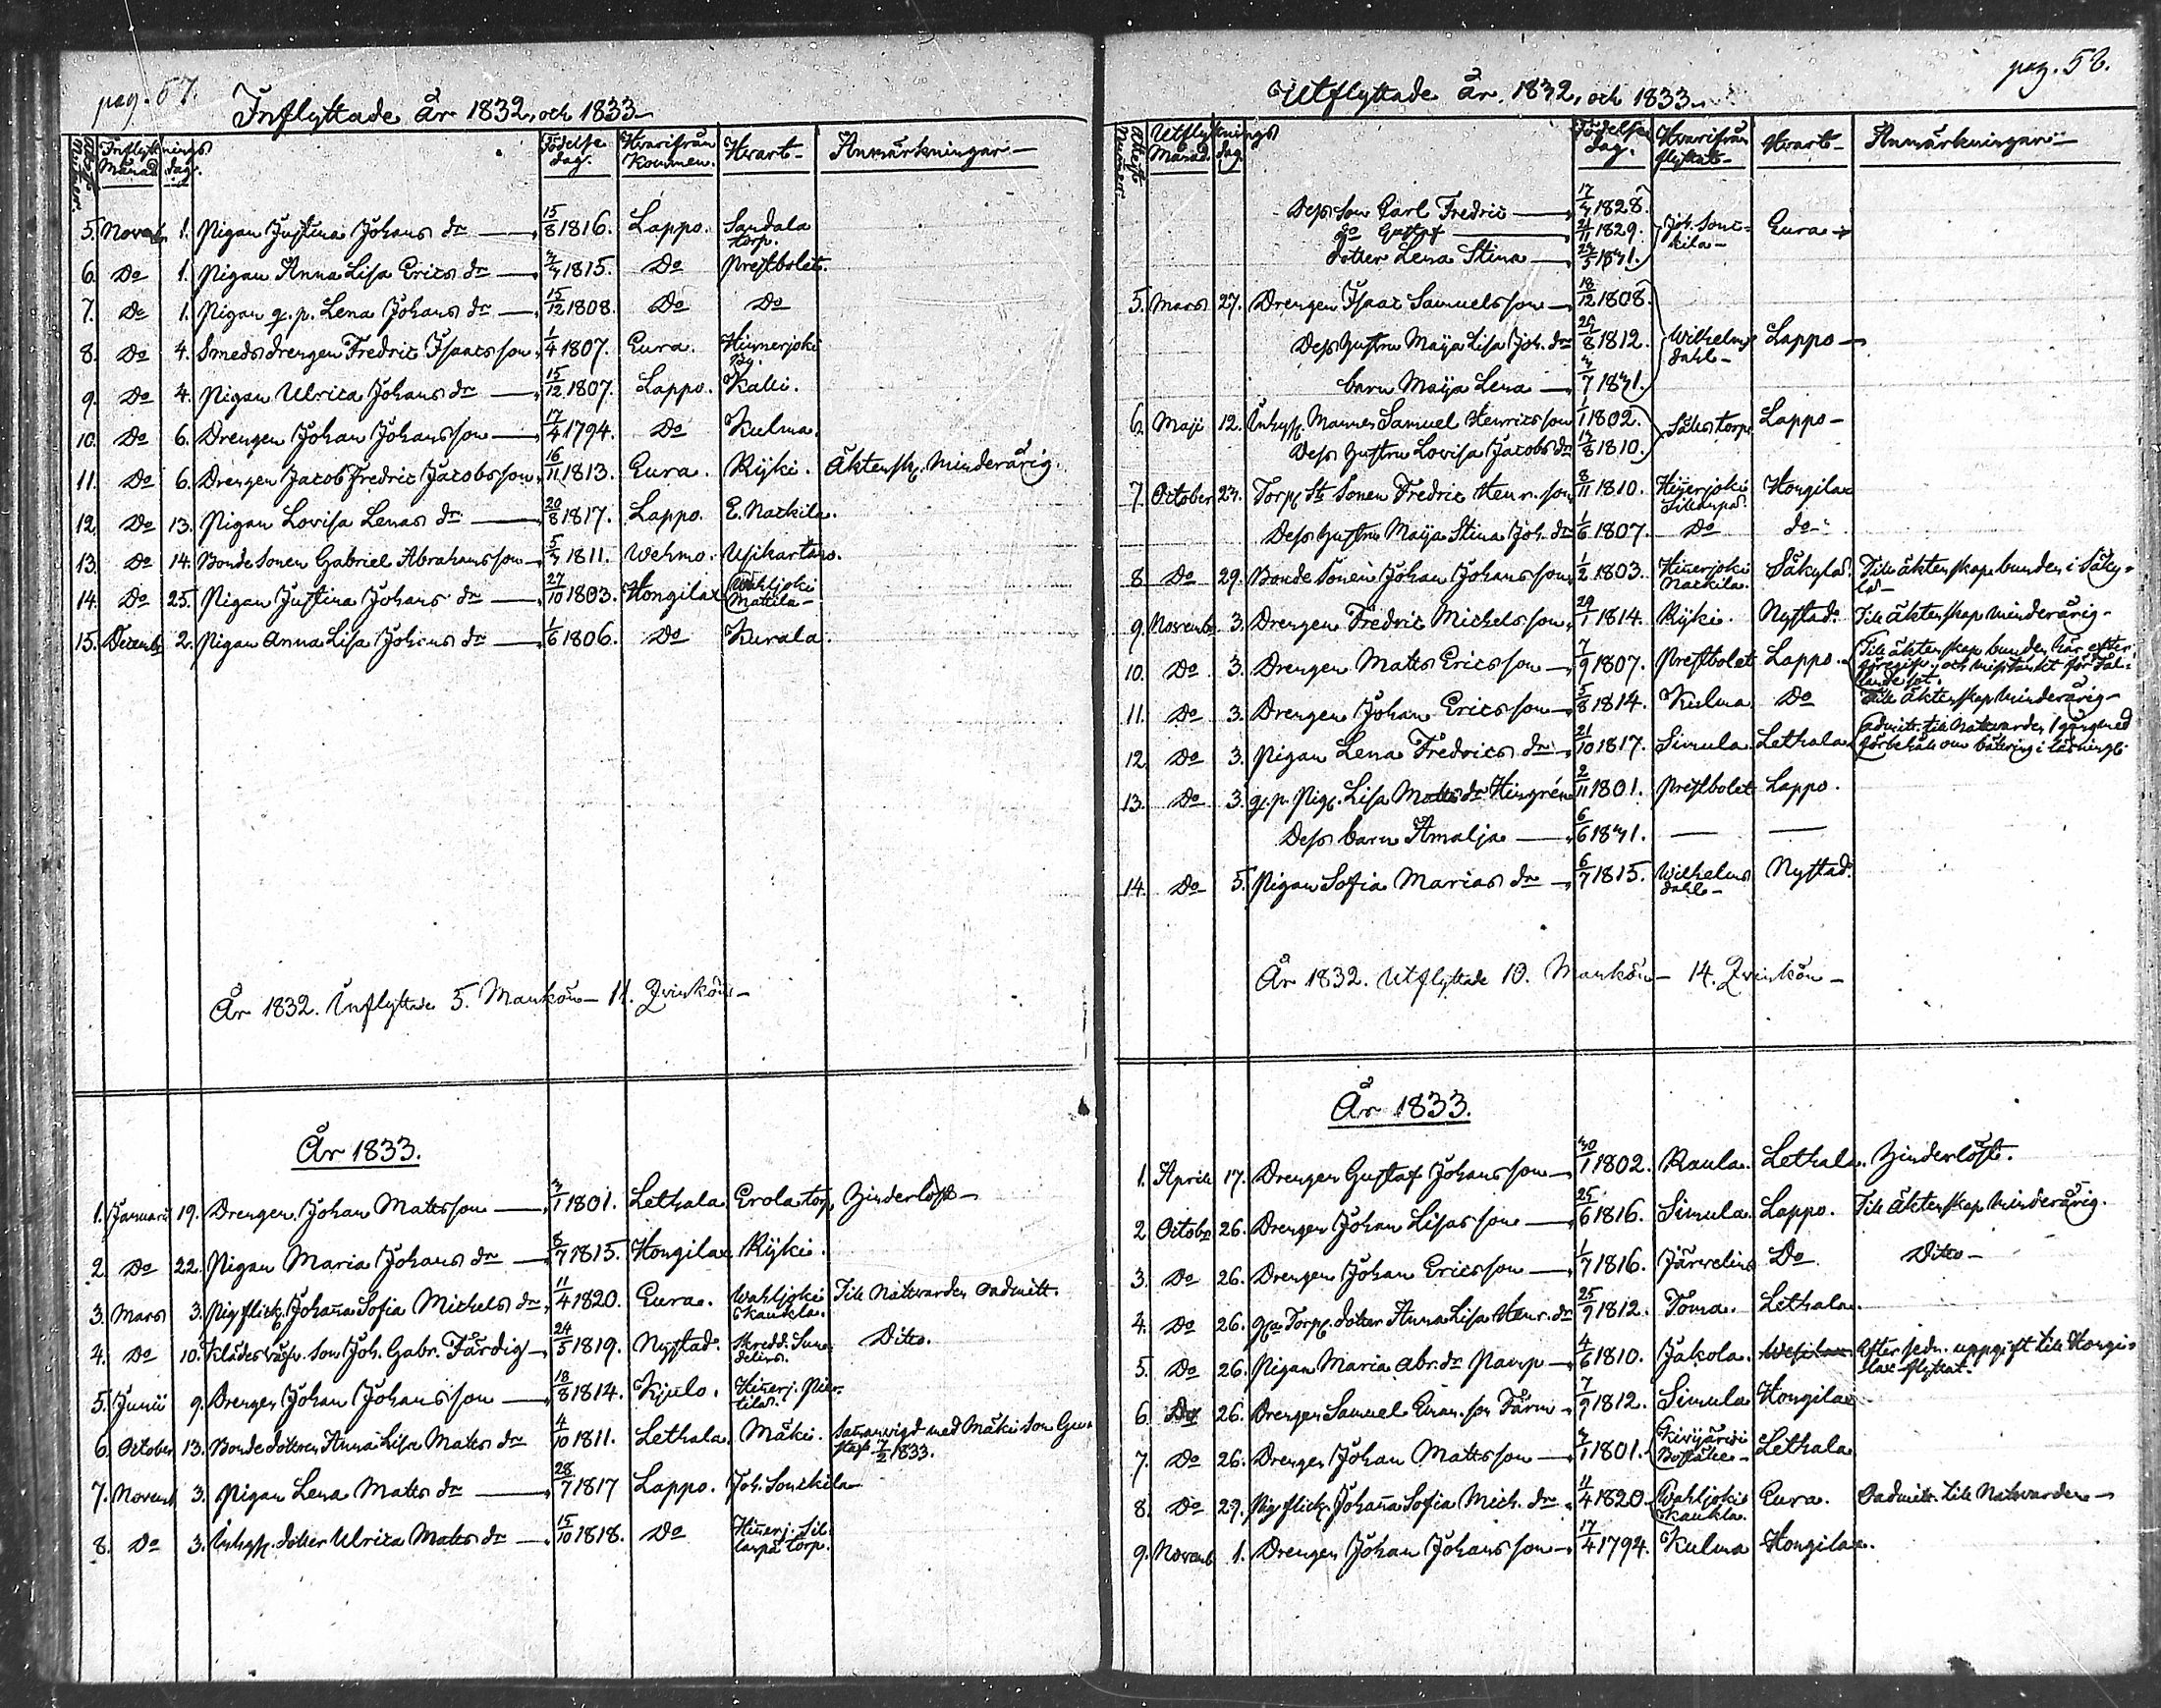 pag. 57.
Inflyttade År 1832, och 1833
Inflyttnings
Månad. dag.
Födelse dag.
Hvarifrån Kommen.
Hvart
Anmärkningar
5. Novem. 1. Pigan Justina Johans dr 15/8 1816. Lappo. Sandala torp.
6. Do 1. Pigan Anna Lisa Erics dr 1815. Do Prestbolet.
7. Do 1. Pigan q. p. Lena Johans dr 15/12 1808. Do Do
8. Do 4. Smedsdrengen Fredric Isaacsson 1/4 1807. Eura. Hinnerjoki By.
9. Do 4. Pigan Ulrica Johans dr 15/12 1807. Lappo. Kalli.
10. Do 6. Drengen Johan Johansson 17/4 1794. Do Kulma.
11. Do 6. Drengen Jacob Fredric Jacobsson 16/11 1813. Eura. Rÿki. Äktensk. Minderårig.
12. Do 13. Pigan Lovisa Lenas dr 20/8 1817. Lappo. E. Nackila.
13. Do 14. Bonde Sonen Gabriel Abrahamsson 5/3 1811. Wehmo. Ylikartano.
14. Do 25. Pigan Justina Johans dr 27/10 1803. Hongilax Wahljoki Mattila
15. Decemb. 2. Pigan Anna Lisa Johans dr 1/6 1806. Do Kurala.
År 1832. Inflyttade 5. Mankön 11. Qvinkön
År 1833.
1. Januarii 19. Drengen Johan Mattsson 3/1 1801. Lethala Erola torp.
2. Do 22. Pigan Maria Johans dr 8/7 1815. Hongilax Rÿki.
3. Mars 3. Pigflick. Johanna Sofia Michels dr 11/4 1820. Eura. Wahljoki Kaukla. Till Nattvarden Oadmitt.
4. Do 10. Klädes väfv. Son Joh. Gabr. Färdig 24/5 1819. Nystad. Skredd. Sundelins. Ditto.
5. Junii 9. Drengen Johan Johansson 18/8 1814. Kjulo. Hinnerj. Pietilas.
6. October 13. Bonde dottren Anna Lisa Matts dr 4/10 1811. Lethala. Mäki. Samanvigd med Mäki Son Gustaf 7/2 1833.
7. Novemb 3. Pigan Lena Matts dr 28/7 1817 Lappo. Joh. Sonckila
8. Do 3. Inhys. dotter Ulrica Matts dr 15/10 1818. Do Hinnerj. Sillanpä torp.
pag. 58.
Utflyttade År 1832, och 1833
Utflyttnings
Månad. dag.
Födelse dag.
Hvarifrån flyttat
Hvart
Anmärkningar
Dess Son Carl Fredric 17/3 1828.
do Gustaf 1829. Joh. Sonckila Eura
dotter Lena Stina 1831.
5. Mars 27. Drengen Isaac Samuelsson 18/12 1808.
Dess Hustru Maija Lisa Joh. dr 1812. Wilhelmsdahl Lappo
barn Maija Lena 3/7 1831.
6. Maji 12. Inhys. Mannen Samuel Henricsson 1/1 1802. Lappo
Dess Hustru Lovisa Jacobs dr 1810.
7. October 23. Torp. Sonen Fredric Henr. son 8/11 1810. Hinnerjoki Sillanpä. Hongilax
Dess Hustru Maija Stina Joh. dr 1/6 1807. Do do
8. Do 29. Bonde Sonen Johan Johansson 1/2 1803. Hinnerjoki Nackila. Säkylä. Till äktenskap bunden i Säkylä
9. Novemb. 3. Drengen Fredric Michelsson 29/1 1814. Rÿki. Nystad. Till äktenskap Minderårig
10. Do 3. Drengen Matts Ericsson 7/9 1807. Prestbolet Lappo. Till äktenskap bunden här efter
11. Do 3. Drengen Johan Ericsson 5/8 1814. Kulma Do Till äktenskap Minderårig
12. Do 3. Pigan Lena Fredrics dr 21/10 1817. Simula. Lethala. admitt. till Nattvarden 1 gång med förbehåll om bättring i läsning.
13. Do 3. q. p. Pig. Lisa Matts dr Hisgrén 2/11 1801. Prestbolet Lappo.
Dess barn Amalja 6/6 1831.
14. Do 5. Pigan Sofia Marias dr 6/7 1815. Wilhelmsdahl Nystad.
År 1832. Utflyttade 10. Mankön 14. Qvinkön
År 1833.
1. April 17. Drengen Gustaf Johansson 30/1 1802. Raula. Lethala.
2. Octobr 26. Drengen Johan Lisasson 25/6 1816. Simula. Lappo. Till äktenskap Minderårig.
3. Do 26. Drengen Johan Ericsson 1/7 1816. Järvelins Do Ditto
4. Do 26. Torp. dotter Anna Lisa Henr. dr 25/9 1812. Toma. Lethala.
5. Do 26. Pigan Maria Abr. dr Pamp 4/6 1810. Jakola. Efter sedn. uppgift till Hongilax flyttat.
6. Do 26. Drengen Samuel Eman. son Färm 7/9 1812. Simula Hongilax
7. Do 26. Drengen Johan Mattsson 3/1 1801. Lethala
8. Do 29. Pigflick. Johanna Sofia Mich. dr 11/4 1820. Wahljoki Kaukla. Eura. Oadmitt. till Nattvarden
9. Novemb 1. Drengen Johan Johansson 17/4 1794. Kulma Hongilax.